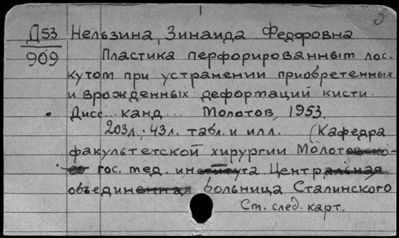 Д53 Нельзина, Зинаида Федоровна
909 Пластика перфорированным лос-
кутом при устранении приобретенных
и врожденных деформаций кисти.
Дисс... канд... Молотов, 1953.
203л.; 43л. табл. и илл. (Кафедра
факультетской хирургии Молотовско-
го гос. мед. института Центральная
объединенная больница Сталинского
См. след. карт.